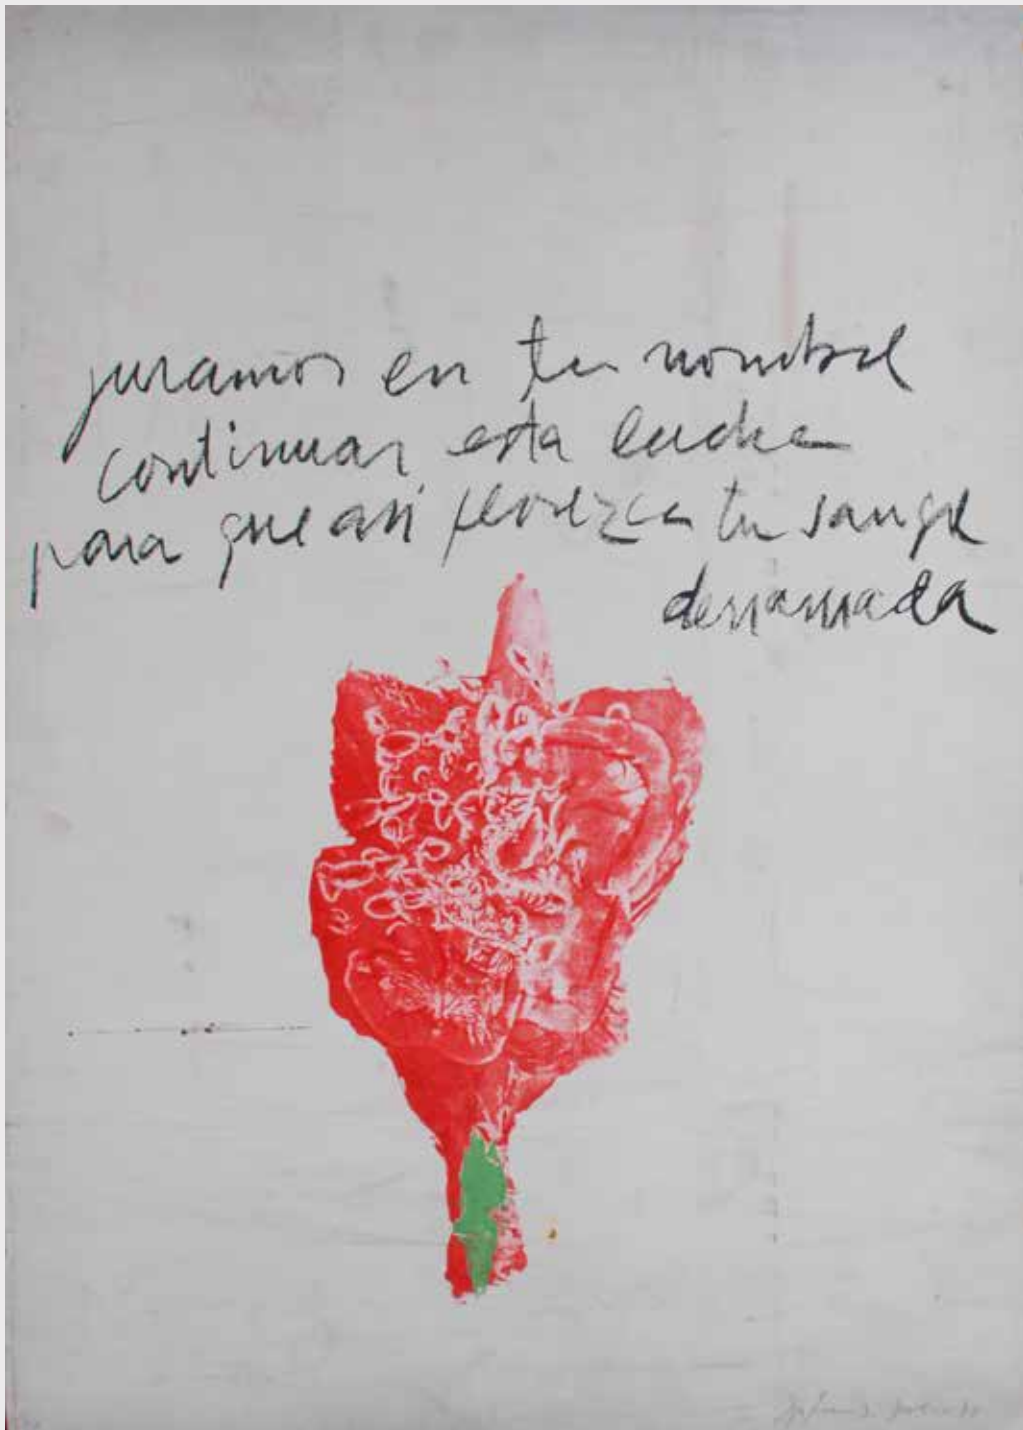 juramos en tu nombre
continuar esta lucha
para que así florezca tu sangre
derramada